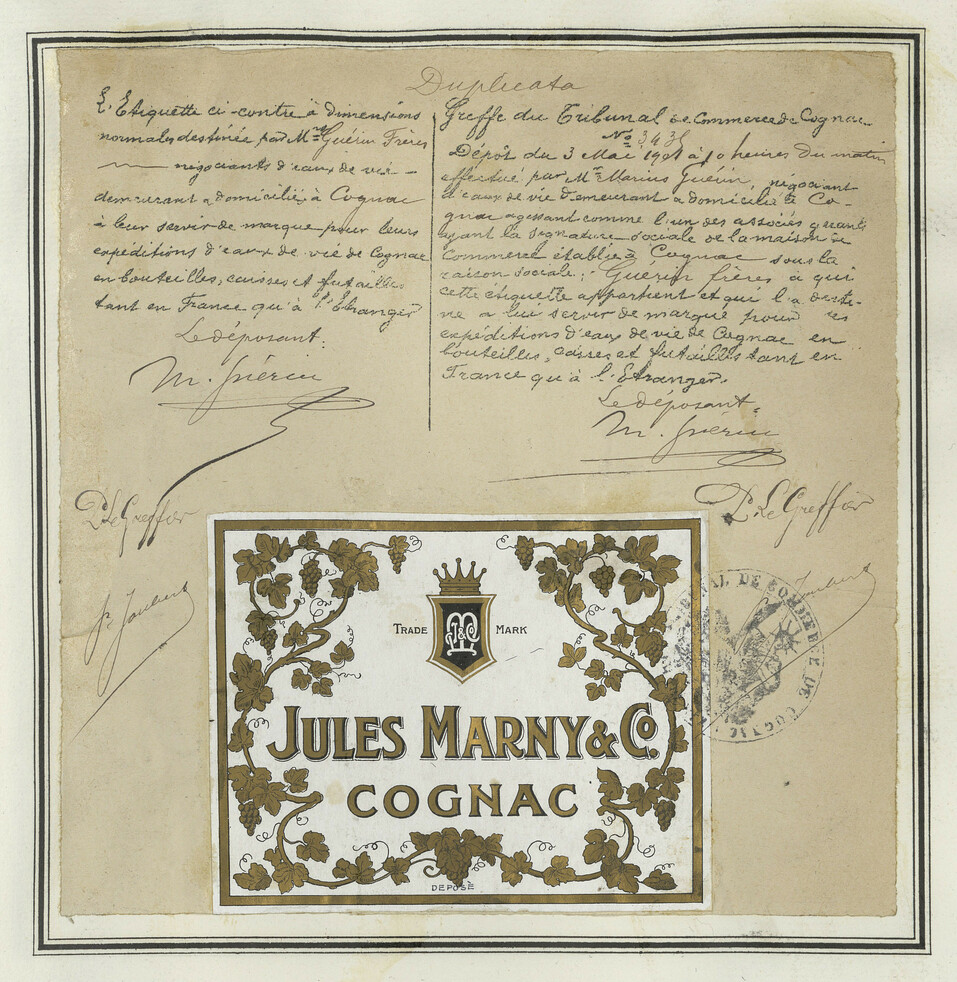 Duplicata
L'Etiquette ci-contre à dimensions
normales destinée par Mrs Guérin Frères
négociants d'eaux de vie
demeurant & domiciliés à Cognac
à leur servir de marque pour leurs
expéditions d'eaux de vie de Cognac
en bouteilles, caisses et futailles
tant en France qu'à l'Etranger
Le déposant:
M. Guérin
P. Le Greffier
Greffe du Tribunal de Commerce de Cognac
No 3435
Dépôt du 3 Mai à 10 heures du matin
effectué par Mr Marius Guérin, négociant
d'eaux de vie demeurant & domicilié à Co-
gnac agissant comme l'un des associés gérants
ayant la signature sociale de la maison de
Commerce établie à Cognac sous la
raison sociale: Guérin frères à qui
cette étiquette appartient et qui l'a desti-
né à lui servir de marque pour ses
expéditions d'eaux de vie de Cognac en
bouteilles, caisses et futailles tant en
France qu'à l'Etranger.
Le déposant:
M. Guérin
P. Le Greffier
TRIBUNAL DE COMMERCE DE COGNAC
TRADE MARK
JULES MARNY & Co.
COGNAC
DEPOSÉ